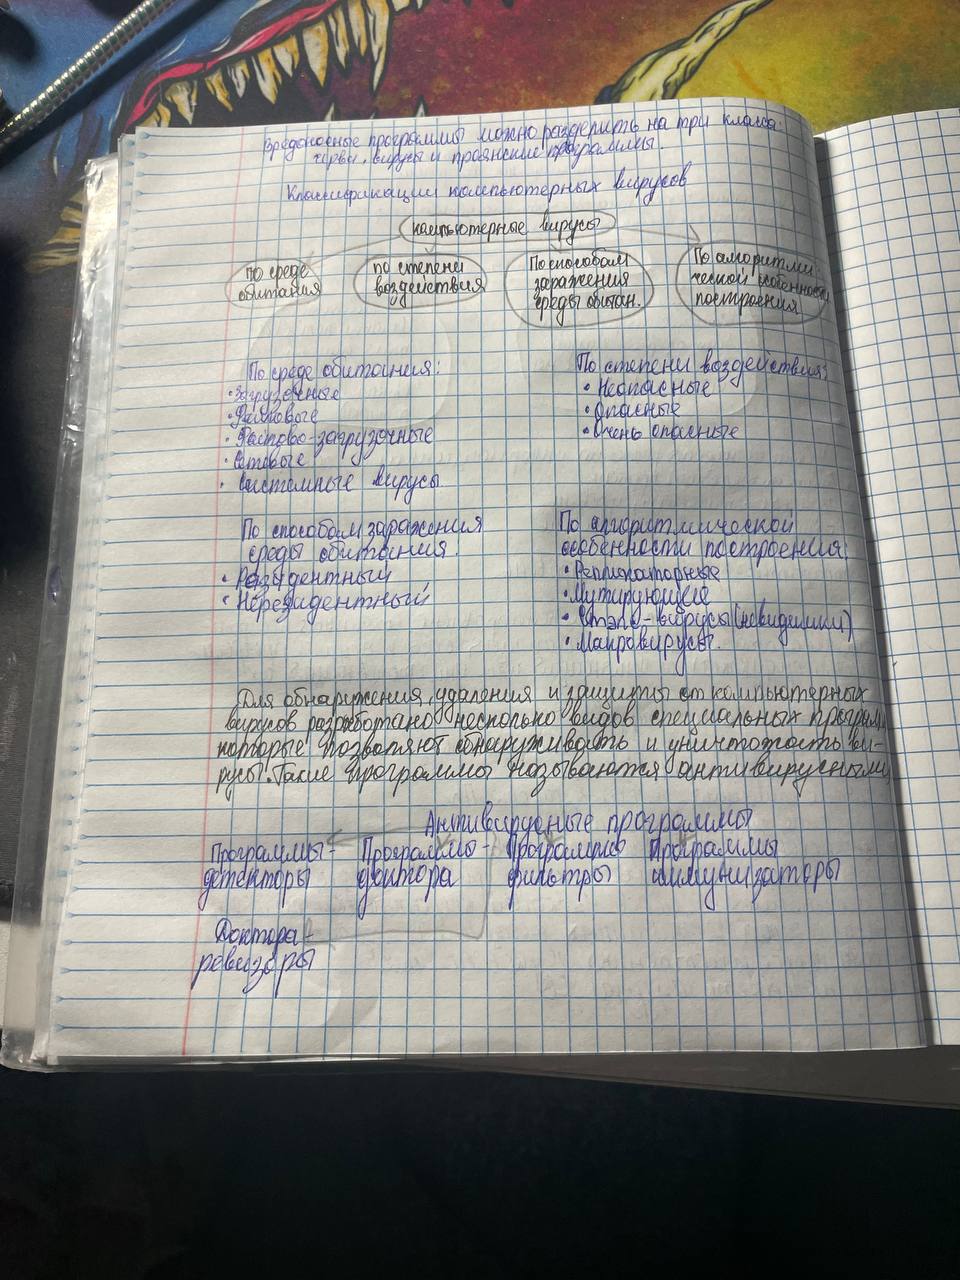 Вредоносные программы можно разделить на три класса:
черви, вирусы и троянские программы.
Классификации компьютерных вирусов
компьютерные вирусы
по среде
обитания
по степени
воздействия
По способам
заражения
среды обитан.
По алгоритми-
ческой особенности
построения
По среде обитания:
• Загрузочные
• Файловые
• Файлово-загрузочные
• Сетевые
• Системные вирусы
По степени воздействия:
• Неопасные
• Опасные
• Очень опасные
По способам заражения
среды обитания
• Резидентный
• Нерезидентный
По алгоритмической
особенности построения
• Репликаторные
• Мутирующие
• Стэлс-вирусы (невидимки)
• Макровирусы.
Для обнаружения, удаления и защиты от компьютерных
вирусов разработано несколько видов специальных программ
которые позволяют обнаруживать и уничтожать ви-
русы. Такие программы называются антивирусными
Антивирусные программы
Программы-
детекторы
Программы-
доктора
Программы
фильтры
Программы
иммунизаторы
Доктора-
ревизоры